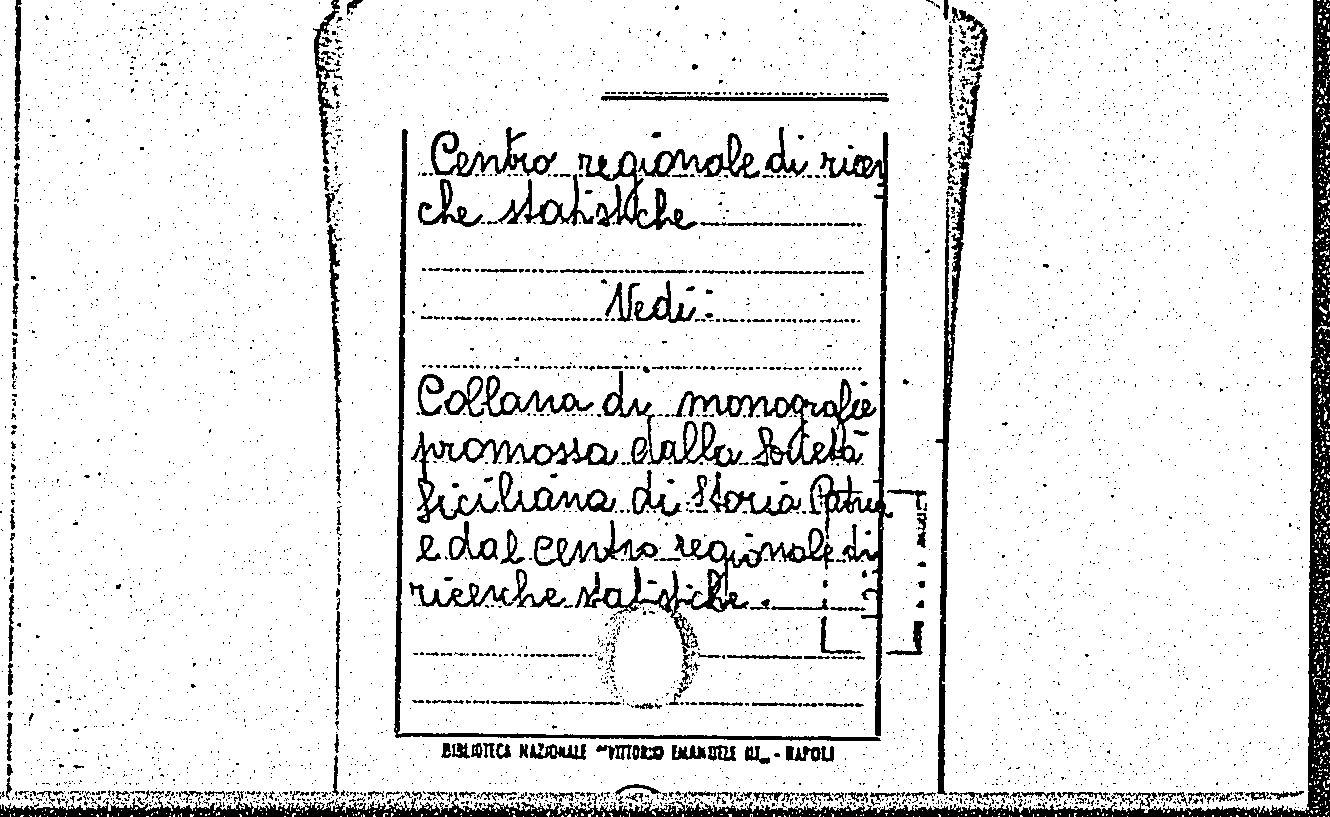 Centro regionale di ricer
che statistiche
Vedi:
Collana di monografie
promossa dalla Società
Siciliana di Storia Patria
e dal centro regionale di
ricerche statistiche.
BIBLIOTECA NAZIONALE "VITTORIO EMANUELE III" - NAPOLI